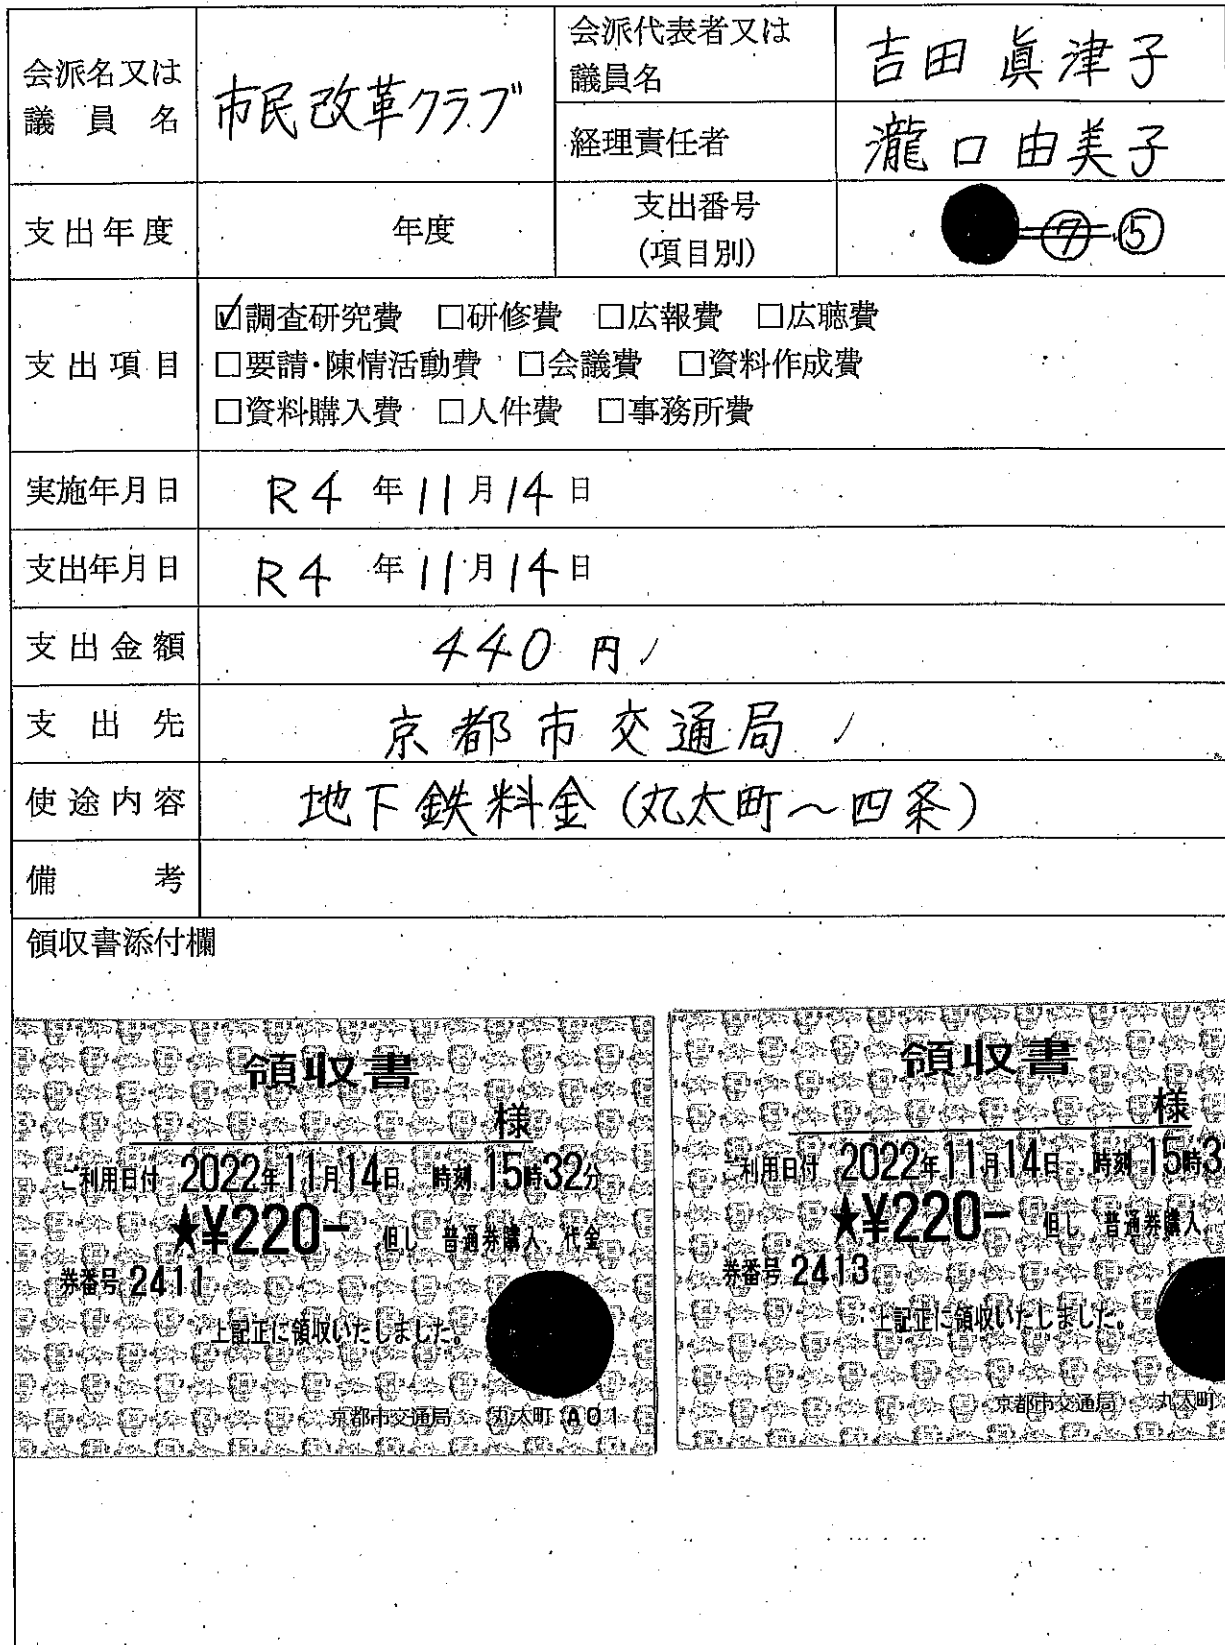 会派名又は
議員名
市民改革クラブ
会派代表者又は
議員名
吉田眞津子
経理責任者
瀧口由美子
支出年度
年度
支出番号
(項目別)
⑦ ⑤
支出項目
☑調査研究費 □研修費 □広報費 □広聴費
□要請・陳情活動費 □会議費 □資料作成費
□資料購入費 □人件費 □事務所費
実施年月日
R4年11月14日
支出年月日
R4年11月14日
支出金額
440円
支出先
京都市交通局
使途内容
地下鉄料金(丸太町~四条)
備考
領収書添付欄
領収書
様
ご利用日付 2022年11月14日 時刻 15時32分
★¥220- 但し 普通券購入 代金
券番号 2411
上記正に領収いたしました。
京都市交通局 丸太町 A01
領収書
様
ご利用日付 2022年11月14日 時刻 15時3
★¥220- 但し 普通券購入
券番号 2413
上記正に領収いたしました。
京都市交通局 丸太町